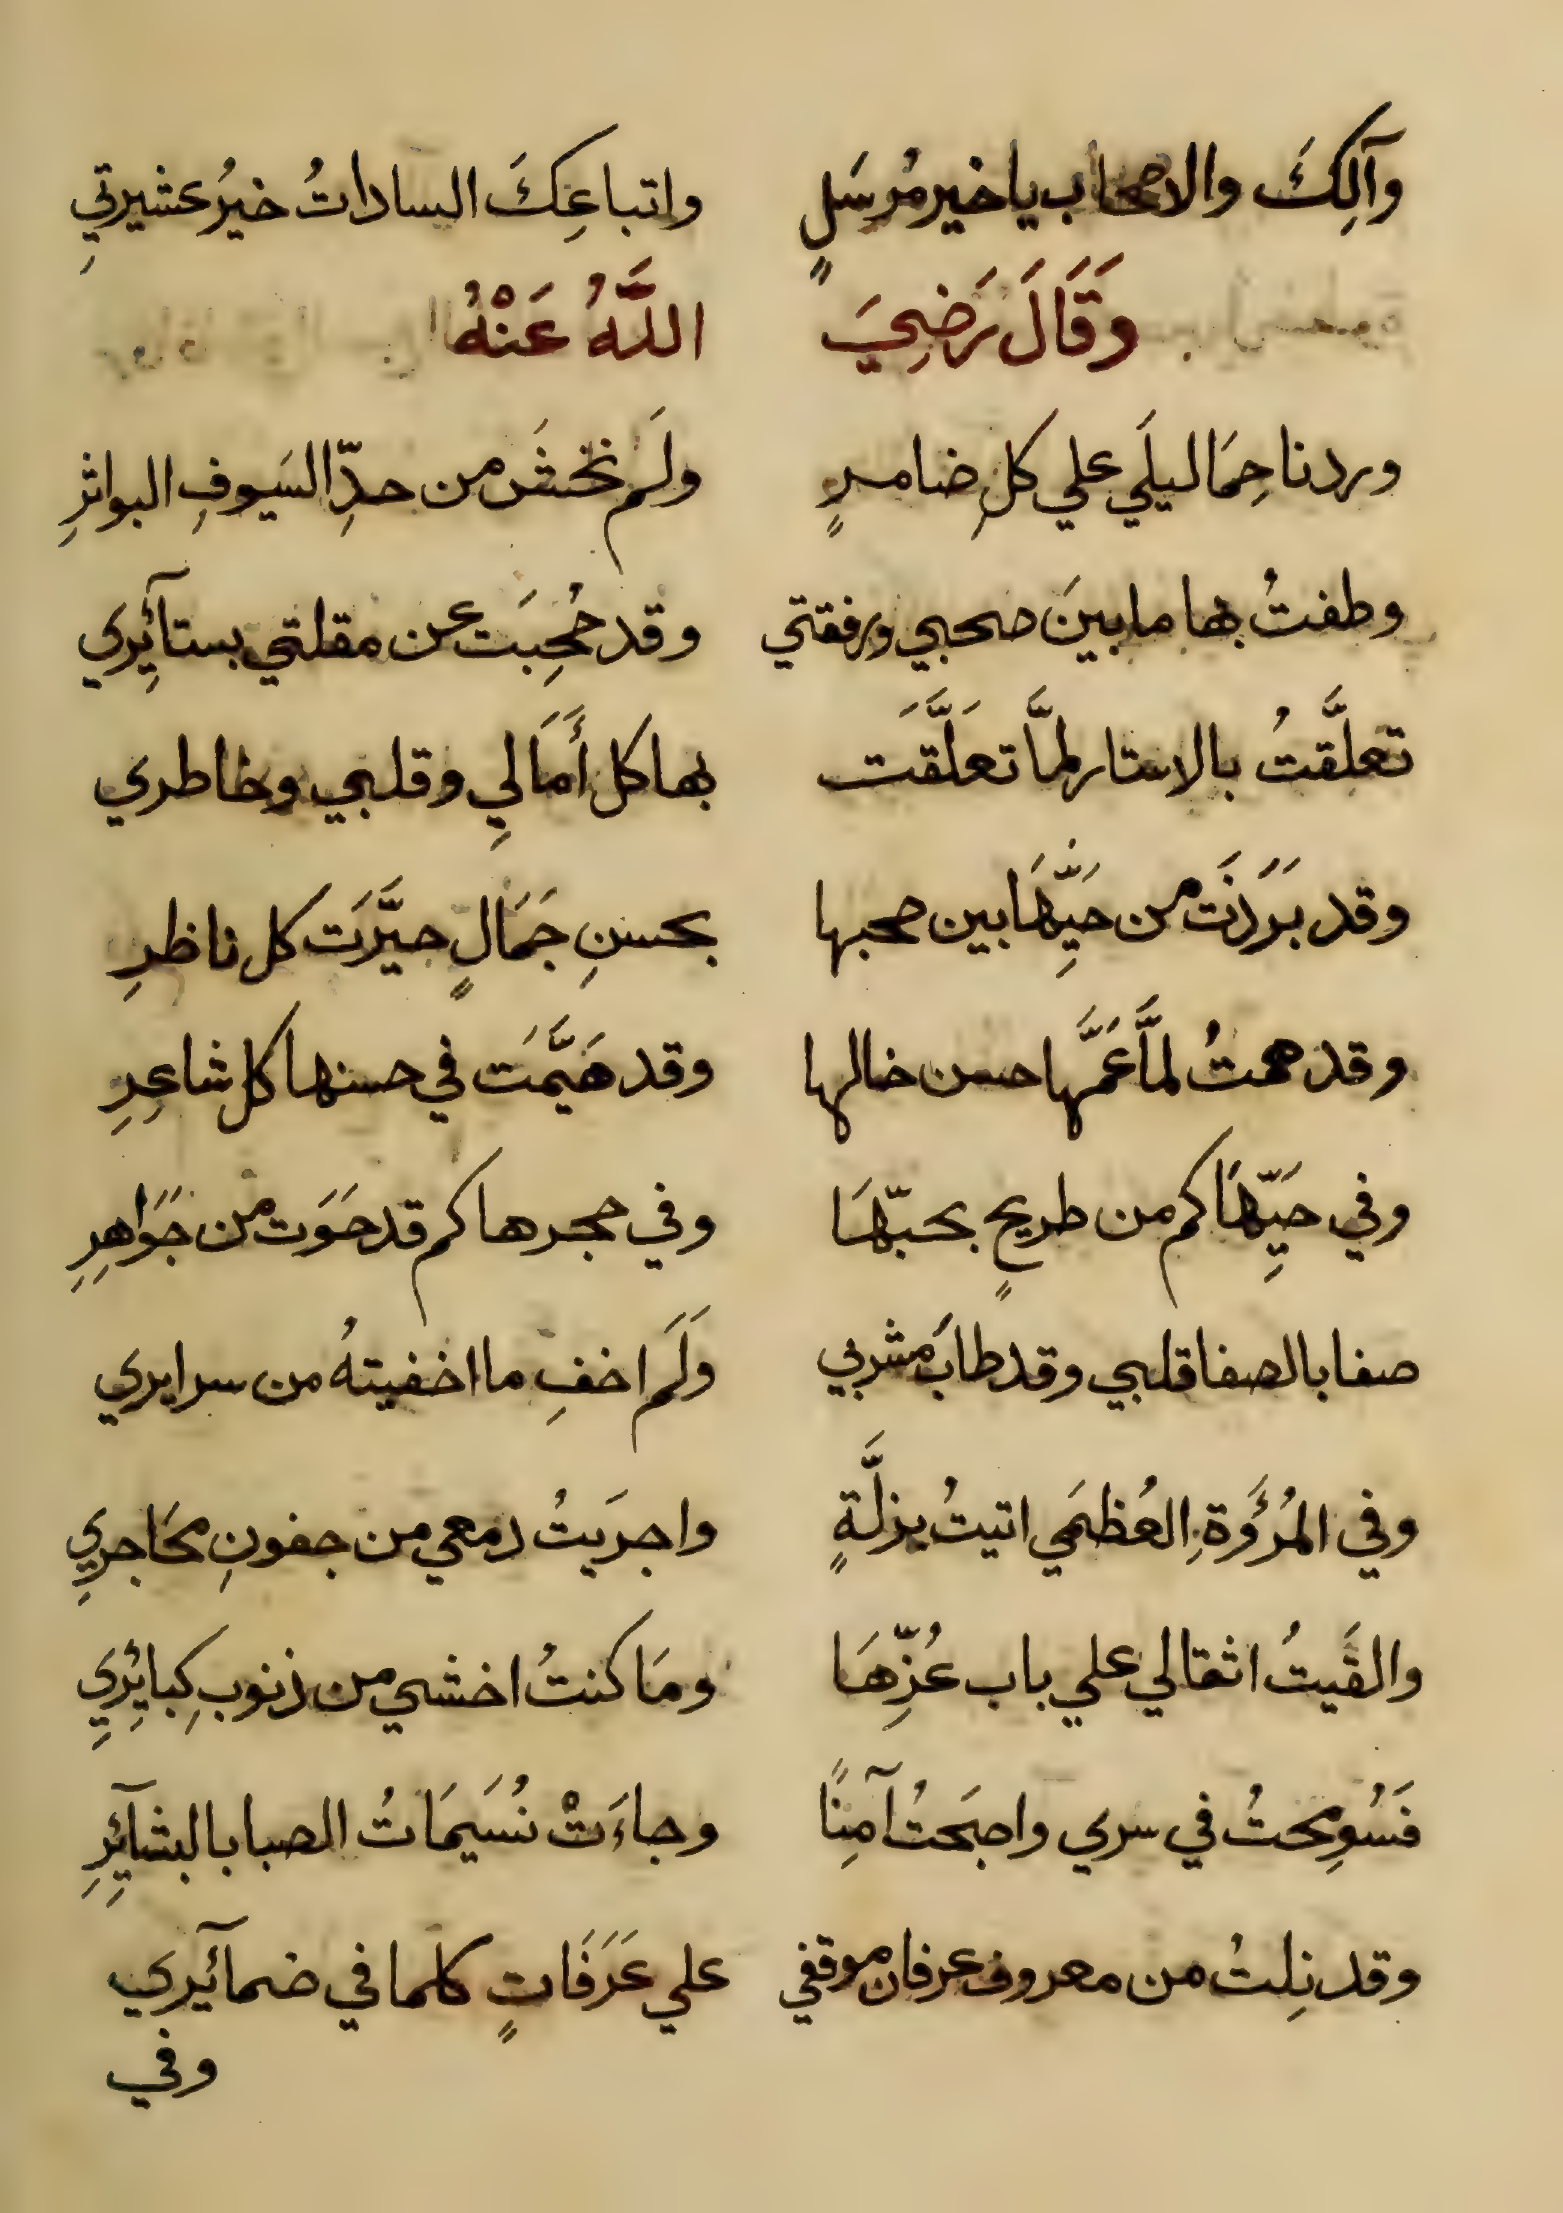 وآلِكَ والاصحاب يا خير مُرسَلٍ واتباعِكَ السادات خيرُ عشيرتي
وَقَالَ رَضِيَ اللَّهُ عَنْهُ
وردنا حِمَا ليلَي علي كلِ ضامرٍ ولَم نخشَ من حدِّ السَيوفِ البواترِ
وطفتُ بها ما بينَ صحبي ورفقتي وقد حُجِبَت عن مقلتي بستآئِري
تعلَّقتُ بالاستار لمَّا تعَلَّقَت بها كل أَمَالِي وقلبي وخاطري
وقد بَرَزَت من حَيِّهَا بين صحبها بحسنِ جَمَالٍ حيَّرَت كل ناظرِ
وقد همتُ لمَّا عَمَّها حسن خالها وقد هَيَّمَت في حسنها كل شاعِرِ
وفي حَيِّهَا كم من طريحٍ بحبّهَا وفي حجرها كم قد حَوَت من جَوَاهِرِ
صفا بالصفا قلبي وقد طابَ مشربي ولَم اخفِ ما اخفيتهُ من سرايري
وفي المُرؤَةِ العُظمَي اتيتُ بزلَّةٍ واجرَيتُ دمعي من جفونِ مَحَاجرِي
والقَيتُ اثقالي علي باب عُزِّهَا ومَا كنتُ اخشي من ذنوبِ كبايِرِي
فَسُومِحتُ في سري واصبَحتُ آمِنًا وجاءَتْ نُسَيمَاتُ الصبا بالبشآئِرِ
وقد نِلتُ من معروف عرفان موقفي علي عَرَفَاتٍ كلما في ضمآئيري
وفي